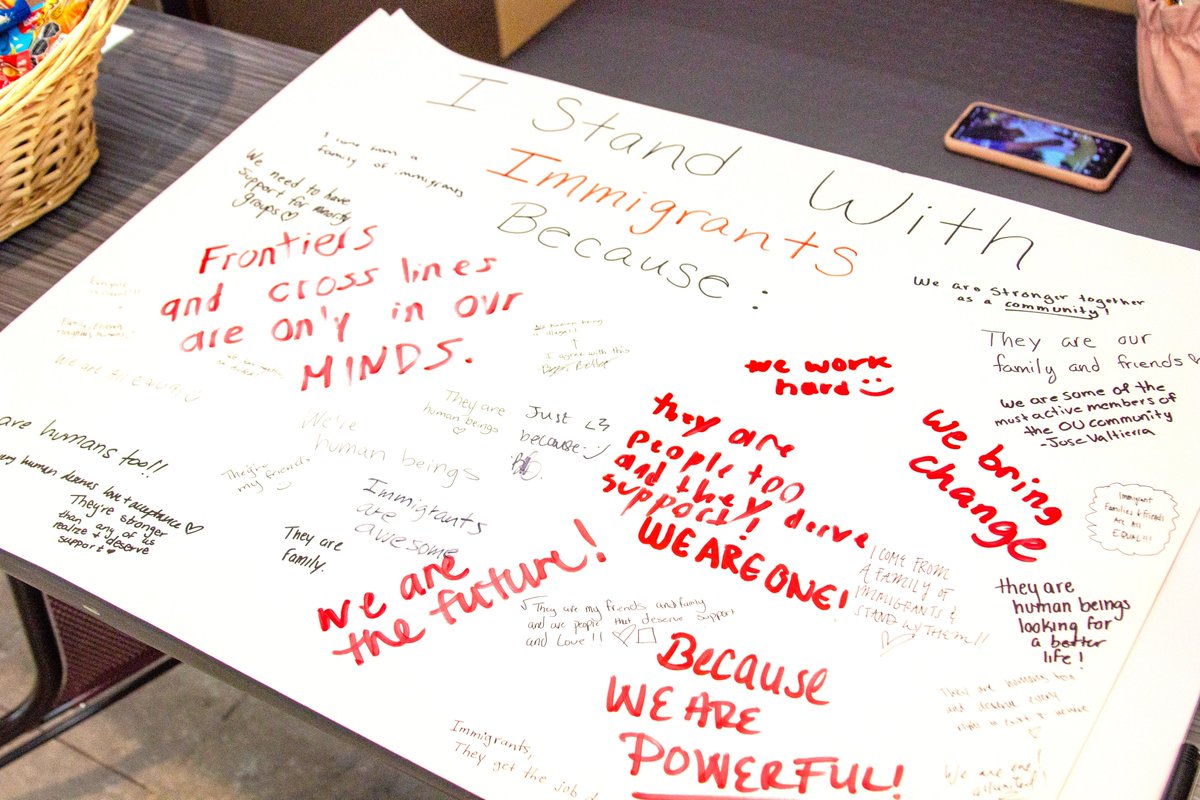 I Stand With
Immigrants
Because:
I come from a
family of immigrants
We need to have
support for minority
groups ♡
Frontiers
and cross lines
are only in our
MINDS.
I agree with this
They are
human beings
♡
Just <3
because :)
We're
human beings
They're
my friends
are humans too!!
human deserves love + acceptance ♡
They're stronger
than any of us
realize + deserve
support ♥
Immigrants
are
awesome
They are
Family.
we are
the future!
They are my friends and family
and are people that deserve support
and Love!! ♡
we work
hard :)
they are
people too
and they derve
support!
WE ARE ONE!
Because
WE ARE
POWERFUL!
Immigrants,
They get the job d
We are stronger together
as a community!
They are our
family and friends ♡
We are some of the
most active members of
the OU community
-Jose Valtierra
we bring
change
Immigrant
Families + friends
Are All
EQUAL!!!
I COME FROM
A FAMILY OF
IMMIGRANTS &
STAND W/ THEM!!
♡
they are
human beings
looking for
a better
life!
They are humans too
and deserve every
We are one!